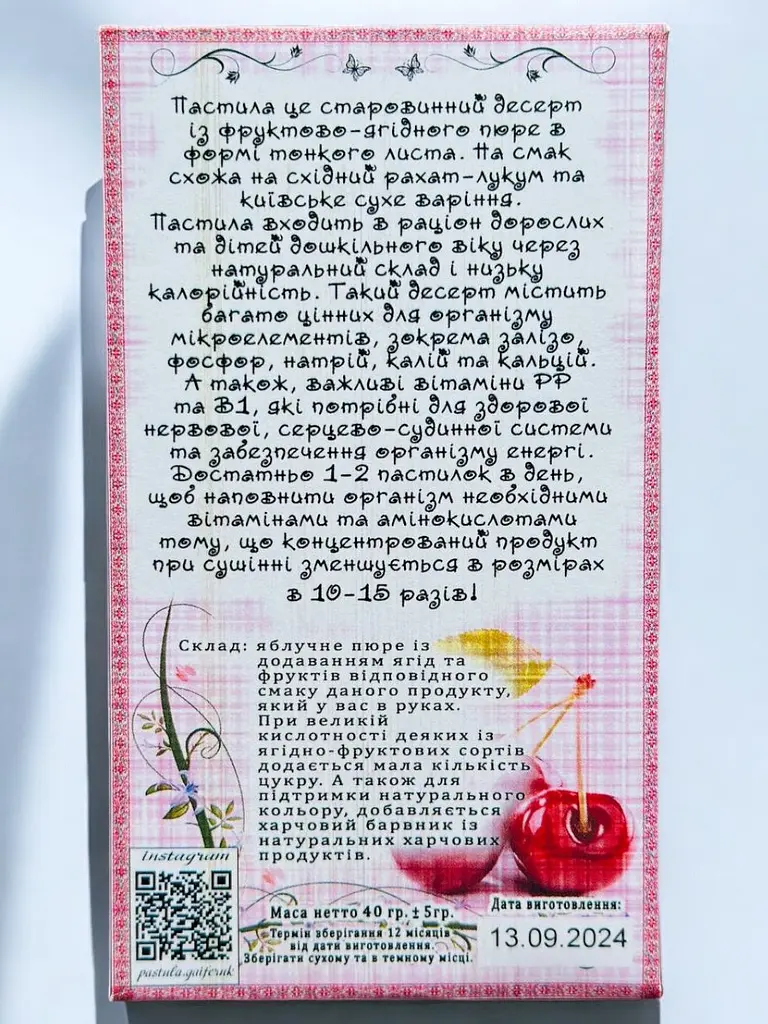 Пастила це старовинний десерт
із фруктово-ягідного пюре в
формі тонкого листа. На смак
схожа на східний рахат-лукум та
київське сухе варіння.
Пастила входить в раціон дорослих
та дітей дошкільного віку через
натуральний склад і низьку
калорійність. Такий десерт містить
багато цінних для організму
мікроелементів, зокрема залізо,
фосфор, натрій, калій та кальцій.
А також, важливі вітаміни РР
та В1, які потрібні для здорової
нервової, серцево-судинної системи
та забезпечення організму енергі.
Достатньо 1-2 пастилок в день,
щоб наповнити організм необхідними
вітамінами та амінокислотами
тому, що концентрований продукт
при сушінні зменшується в розмірах
в 10-15 разів!
Склад: яблучне пюре із
додаванням ягід та
фруктів відповідного
смаку даного продукту,
який у вас в руках.
При великій
кислотності деяких із
ягідно-фруктових сортів
додається мала кількість
цукру. А також для
підтримки натурального
кольору, добавляється
харчовий барвник із
натуральних харчових
продуктів.
instagram
pastula.gaifernk
Маса нетто 40 гр. ± 5гр.
Термін зберігання 12 місяців
від дати виготовлення.
Зберігати сухому та в темному місці.
Дата виготовлення:
13.09.2024